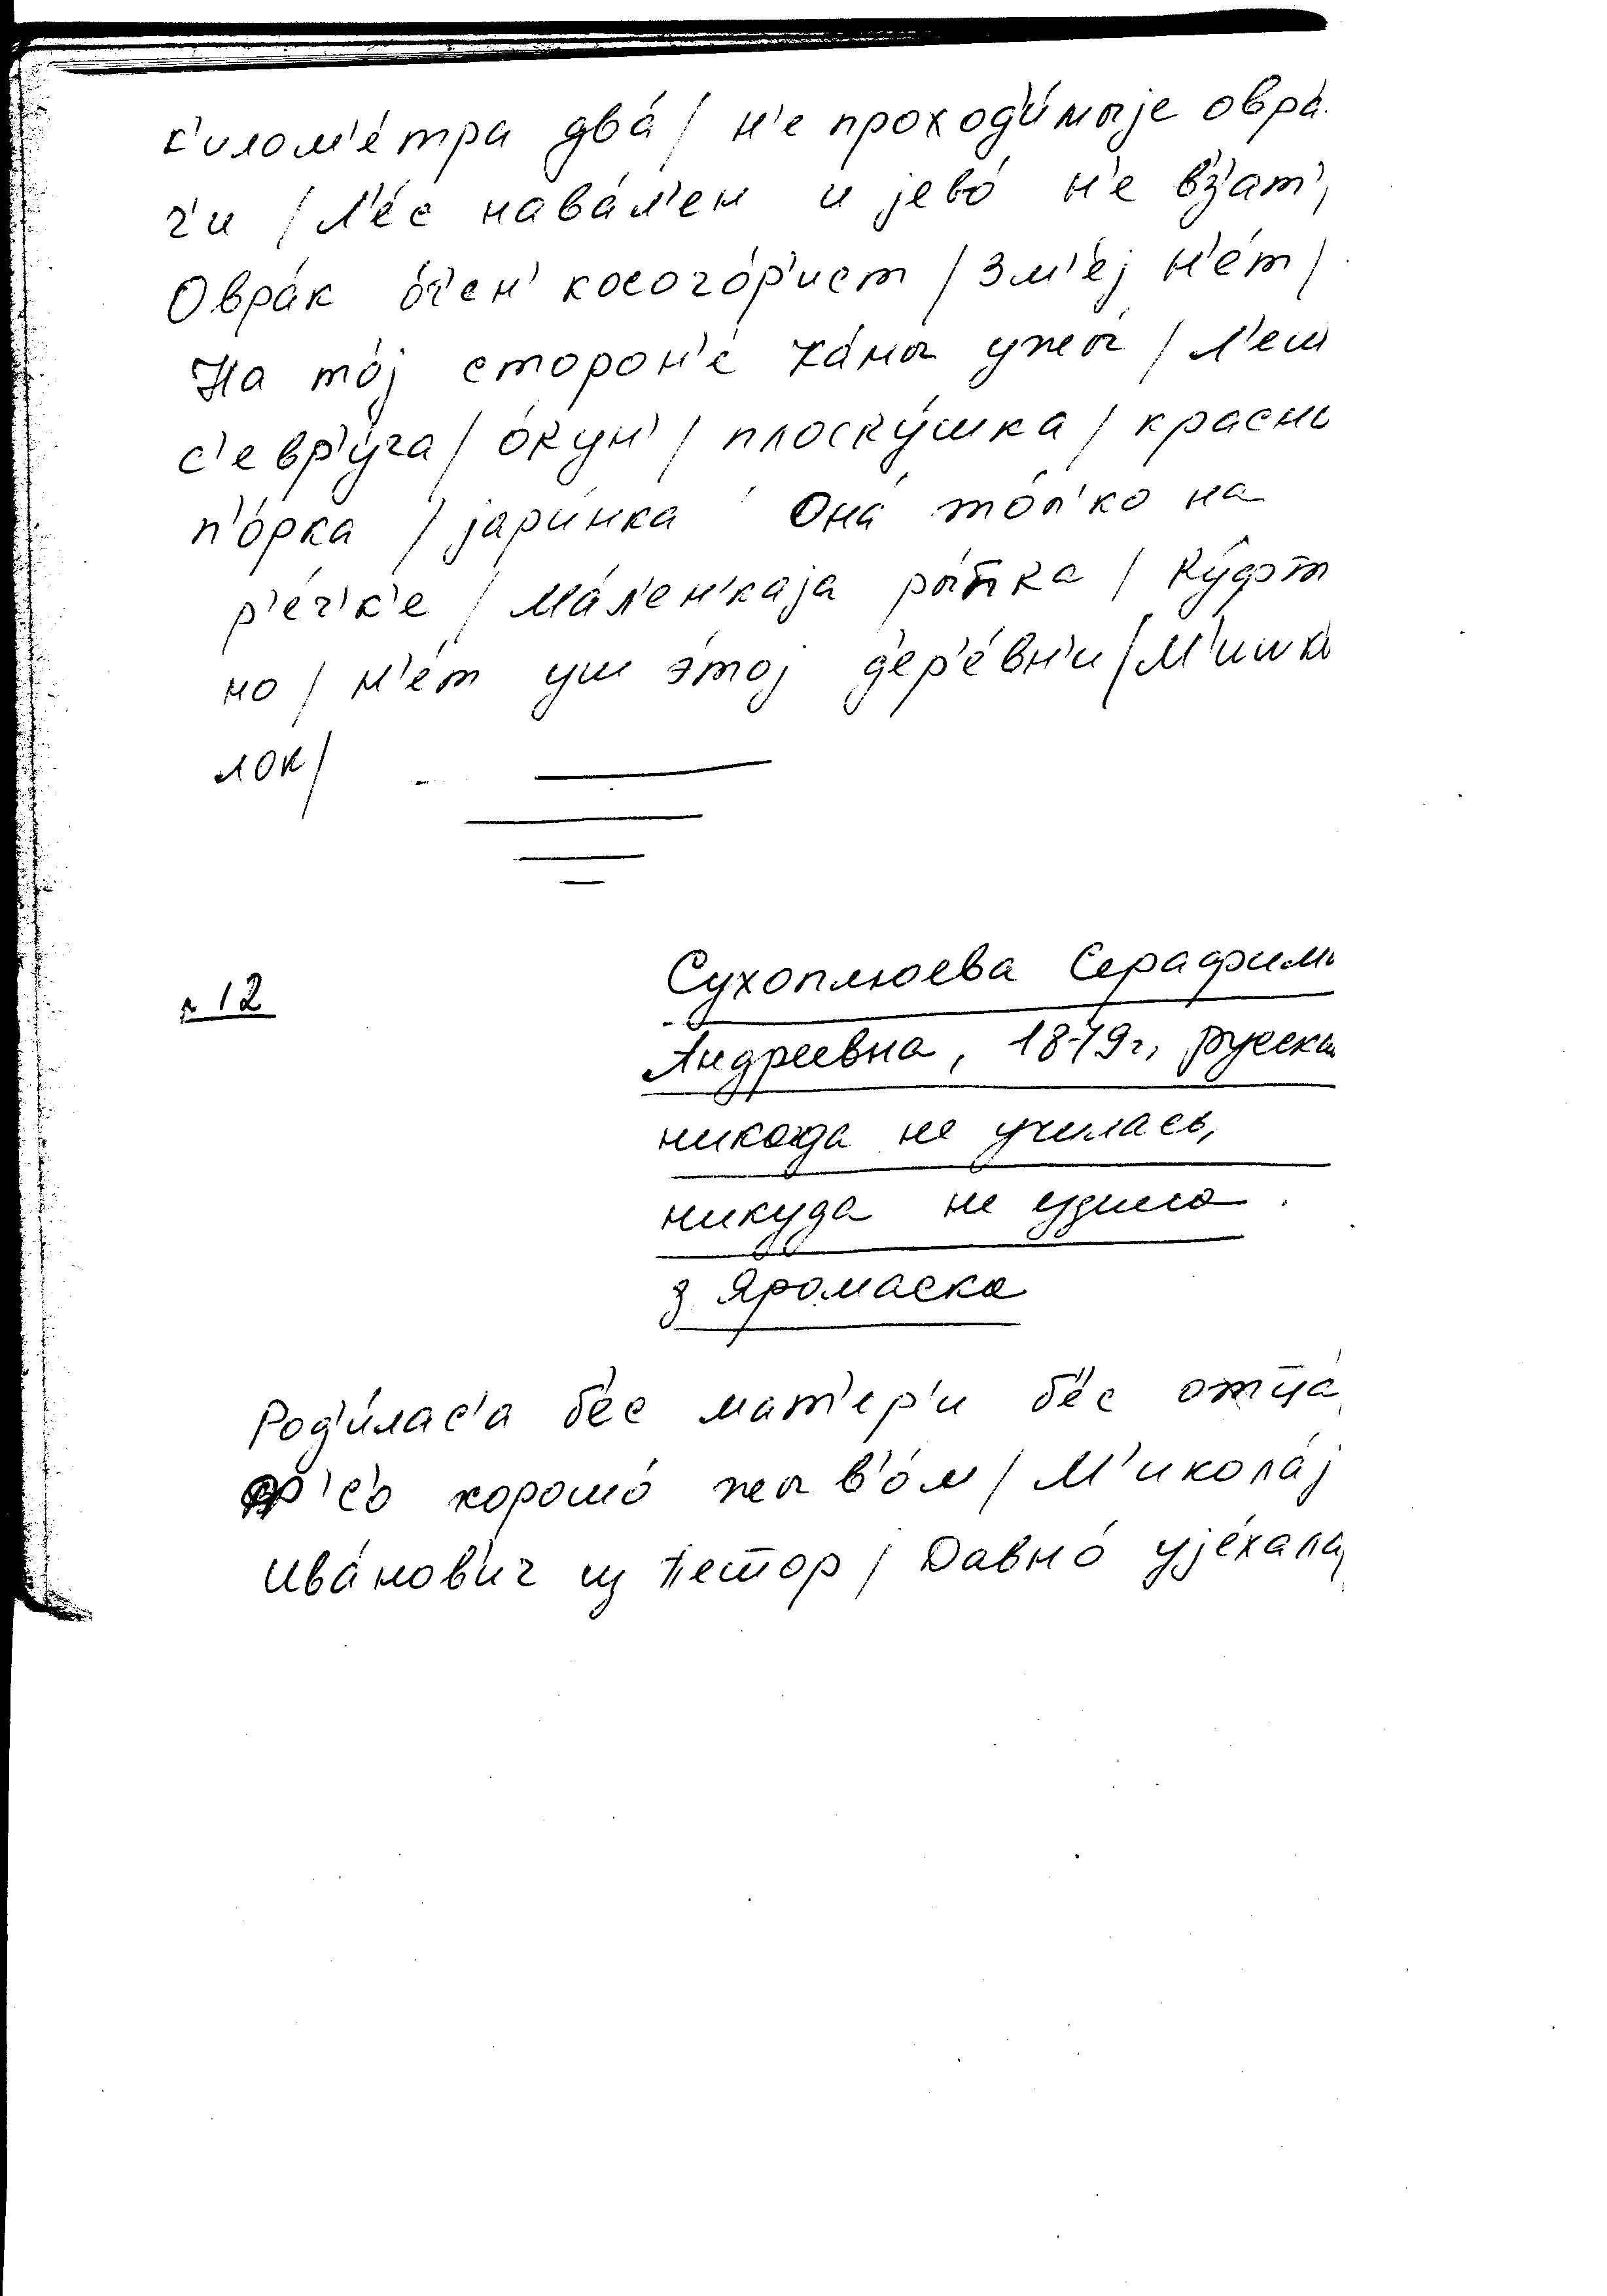 к'илом'е́тра два́ / н'е проход'и́мыjе овра́
г'и / л'éс нава́л'ен и jево́ н'е вз'ат'/
Овра́к о́ч'ен' косого́р'ист / Зм'éj н'éт /
На то́j сторон'é ха́ны ужы́ / л'ещ
с'евр'у́га / о́кун' / плоску́шка / красно
п'о́рка / jари́нка / Она́ то́л'ко на
р'éч'к'е / ма́л'ен'каjа ры́пка / Ку́фт
но / н'éт уш э́тоj д'ер'éвн'и / М'ишк
лок /
№ 12
Сухоплюева Серафим
Андреевна, 1879г, русска
никогда не училась,
никуда не ездила
з Яромаска
Род'и́лас'а б'éс мат'ер'и б'éс отца́
хорошо́ жыв'о́м / М'икола́j
Ива́нов'ич / Давно́ уjéхала,